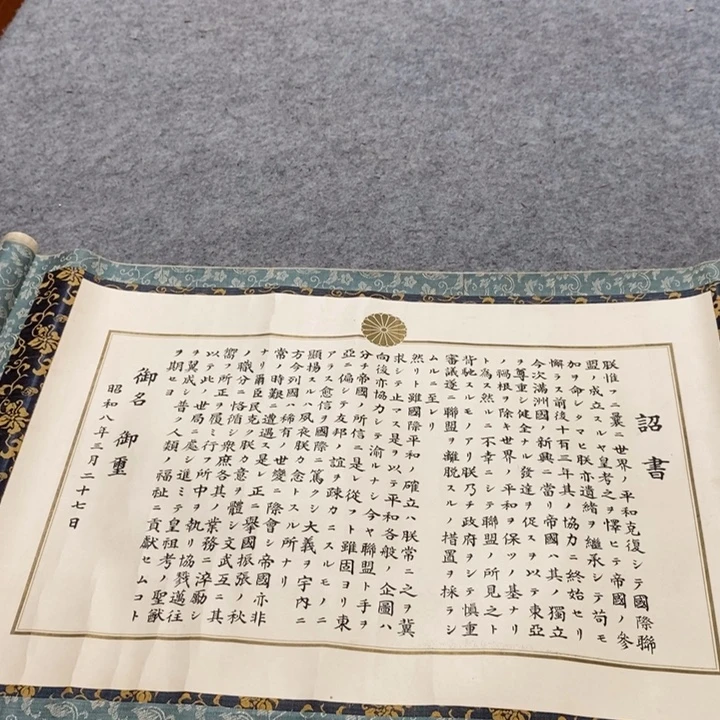 詔書
朕惟フニ曩ニ世界ノ平和克復シテ國際聯
盟ノ成立スルヤ皇考之ヲ懌ヒテ帝國ノ參
加ヲ命シタマヒ朕亦遺緒ヲ繼承シテ苟モ
懈ラス前後十有三年其ノ協力ニ終始セリ
今次滿洲國ノ新興ニ當リ帝國ハ其ノ獨立
ヲ尊重シ健全ナル發達ヲ促スヲ以テ東亞
ノ禍根ヲ除キ世界ノ平和ヲ保ツノ基ナリ
ト為ス然ルニ不幸ニシテ聯盟ノ所見之ト
背馳スルモノアリ朕乃チ政府ヲシテ愼重
審議遂ニ聯盟ヲ離脱スルノ措置ヲ採ラシ
ムルニ至レリ
然リト雖國際平和ノ確立ハ朕常ニ之ヲ冀
求シテ止マス是ヲ以テ平和各般ノ企圖ハ
向後亦協力シテ渝ルナシ今ヤ聯盟ト手ヲ
分チ帝國ノ所信ニ是レ從フト雖固ヨリ東
亞ニ偏シテ友邦ノ誼ヲ疎カニスルモノニ
アラス愈信ヲ國際ニ篤クシ大義ヲ宇內ニ
顯揚スルハ夙夜朕カ念トスル所ナリ
方今列國ハ稀有ノ世變ニ際會シ帝國亦非
常ノ時艱ニ遭遇ス是レ正ニ擧國振張ノ秋
ナリ爾臣民克ク朕カ意ヲ體シ文武互ニ其
ノ職分ニ恪循シ衆庶各其ノ業務ニ淬勵シ
嚮フ所正ヲ履ミ行フ所中ヲ執リ協戮邁往
以テ此ノ世局ニ處シ進ミテ皇祖考ノ聖猷
ヲ翼成シ普ク人類ノ福祉ニ貢獻セムコト
ヲ期セヨ
御名 御璽
昭和八年三月二十七日